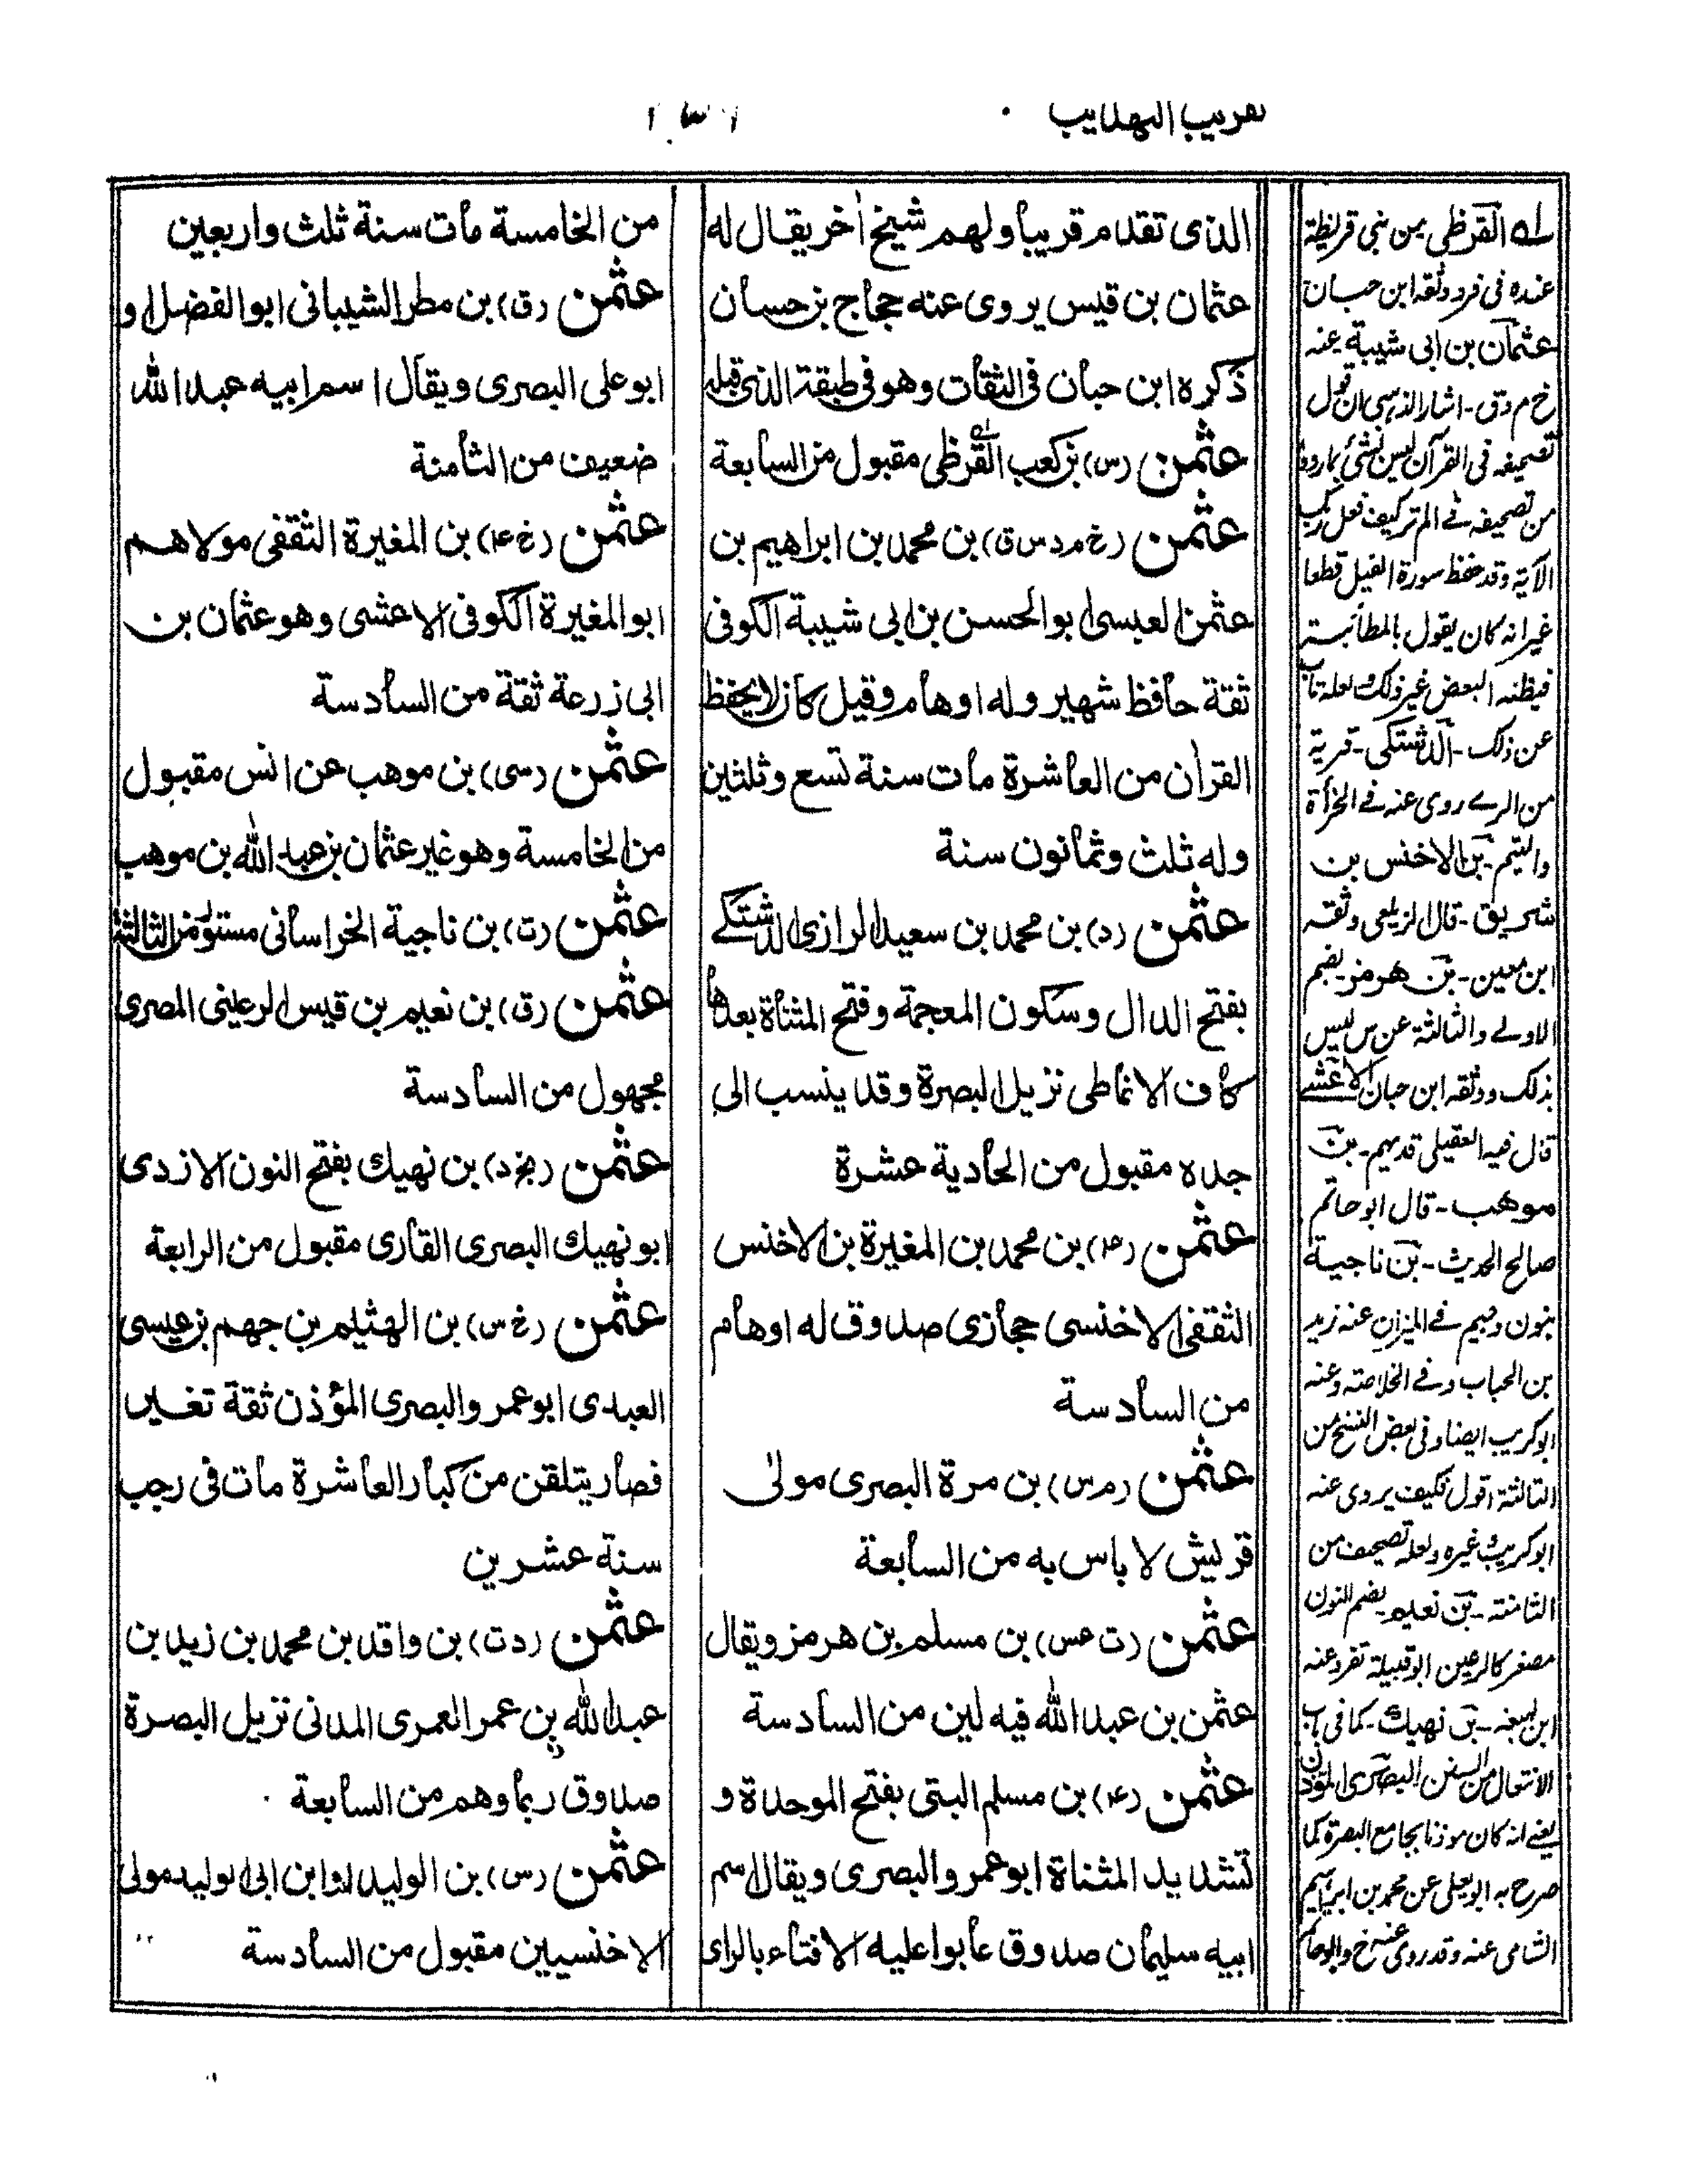 تقريب التهذيب
الذى تقدم قريبا ولهم شيخ اٰخر يقال له
عثمان بن قيس يروى عنه حجاج بن حسان
ذكره ابن حبان فى الثقات وهو فى طبقة الذى قبله
عثمٰن (س) بن كعب القرظى مقبول من السابعة
عثمٰن (خ م د س ق) بن محمد بن ابراهيم بن
عثمٰن العبسى ابو الحسن بن ابى شيبة الكوفى
ثقة حافظ شهير وله اوهام وقيل كان لا يحفظ
القراٰن من العاشرة مات سنة تسع وثلثين
وله ثلث وثمانون سنة
عثمٰن (د) بن محمد بن سعيد الرازى الدشتكے
بفتح الدال وسكون المعجمة وفتح المثناة بعدها
كاف الانماطى نزيل البصرة وقد ينسب الى
جده مقبول من الحادية عشرة
عثمٰن (۴) بن محمد بن المغيرة بن الاخنس
الثقفى الاخنسى حجازى صدوق له اوهام
من السادسة
عثمٰن (م س) بن مرة البصرى مولىٰ
قريش لا باس به من السابعة
عثمٰن (ت عس) بن مسلم بن هرمز ويقال
عثمٰن بن عبد الله فيه لين من السادسة
عثمٰن (۴) بن مسلم البتى بفتح الموحدة و
تشديد المثناة ابو عمرو البصرى ويقال اسم
ابيه سليمان صدوق عابوا عليه الافتاء بالراى
من الخامسة مات سنة ثلث واربعين
عثمٰن (ق) بن مطر الشيبانى ابو الفضل او
ابو على البصرى ويقال اسم ابيه عبد الله
ضعيف من الثامنة
عثمٰن (خ ۴) بن المغيرة الثقفى مولاهم
ابو المغيرة الكوفى الاعشى وهو عثمان بن
ابى زرعة ثقة من السادسة
عثمٰن (سى) بن موهب عن انس مقبول
من الخامسة وهو غير عثمان بن عبد الله بن موهب
عثمٰن (ت) بن ناجية الخراسانى مستور من الثالثة
عثمٰن (ق) بن نعيم بن قيس الرعينى المصرى
مجهول من السادسة
عثمٰن (بخ د) بن نهيك بفتح النون الازدى
ابو نهيك البصرى القارى مقبول من الرابعة
عثمٰن (خ س) بن الهثيم بن جهم بن عيسى
العبدى ابو عمرو البصرى المؤذن ثقة تغير
فصار يتلقن من كبار العاشرة مات فى رجب
سنة عشرين
عثمٰن (د ت) بن واقد بن محمد بن زيد بن
عبد الله بن عمر العمرى المدنى نزيل البصرة
صدوق ربما وهم من السابعة
عثمٰن (س) بن الوليد او ابن ابى الوليد مولى
الاخنسيين مقبول من السادسة
القرظى من بنى قريظة
عنده فى فرد وثقه ابن حبان
عثمان بن ابى شيبة عنه
خ م د ق - اشار الذهبى ان قول
تصحيفه فى القرآن ليس بشئ بما روى
من تصحيفه فے الم تر كيف فعل ربك
الآية وقد حفظ سورة الفيل قطعا
غير انه كان يقول بالمطائبة
فيظنه البعض غير ذلك ولعله تاب
عن ذلك - الدشتكى - قرية
من الرے روى عنه فے الخرأة
والتيمم - بن الاخنس بن
شريق - قال الزيلعى وثقه
ابن معين - بن هرمز - بضم
الاولے والثالثة عن س ليس
بذلك ووثقه ابن حبان الاعشے
قال فيه العقيلى قد يهم - بن
موهب - قال ابو حاتم
صالح الحديث - بن ناجية
بنون وجيم فے الميزان عنه زيد
بن الحباب وفے الخلاصة وعنه
ابو كريب ايضا وفى بعض النسخ من
الثالثة اقول فكيف يروى عنه
ابو كريب وغيره ولعله تصحيف من
الثامنة - بن نعيم - بضم النون
مصغر كالرعين ابو قبيلة تفرد عنه
ابن لهيعة - بن نهيك - كما فى باب
الانتعال من السنن البصرى المؤذن
يعنے انه كان موذنا بجامع البصرة كما
صرح به ابو يعلى عن محمد بن ابراهيم
الشامى عنه وقد روى عنه خ وابو حاتم